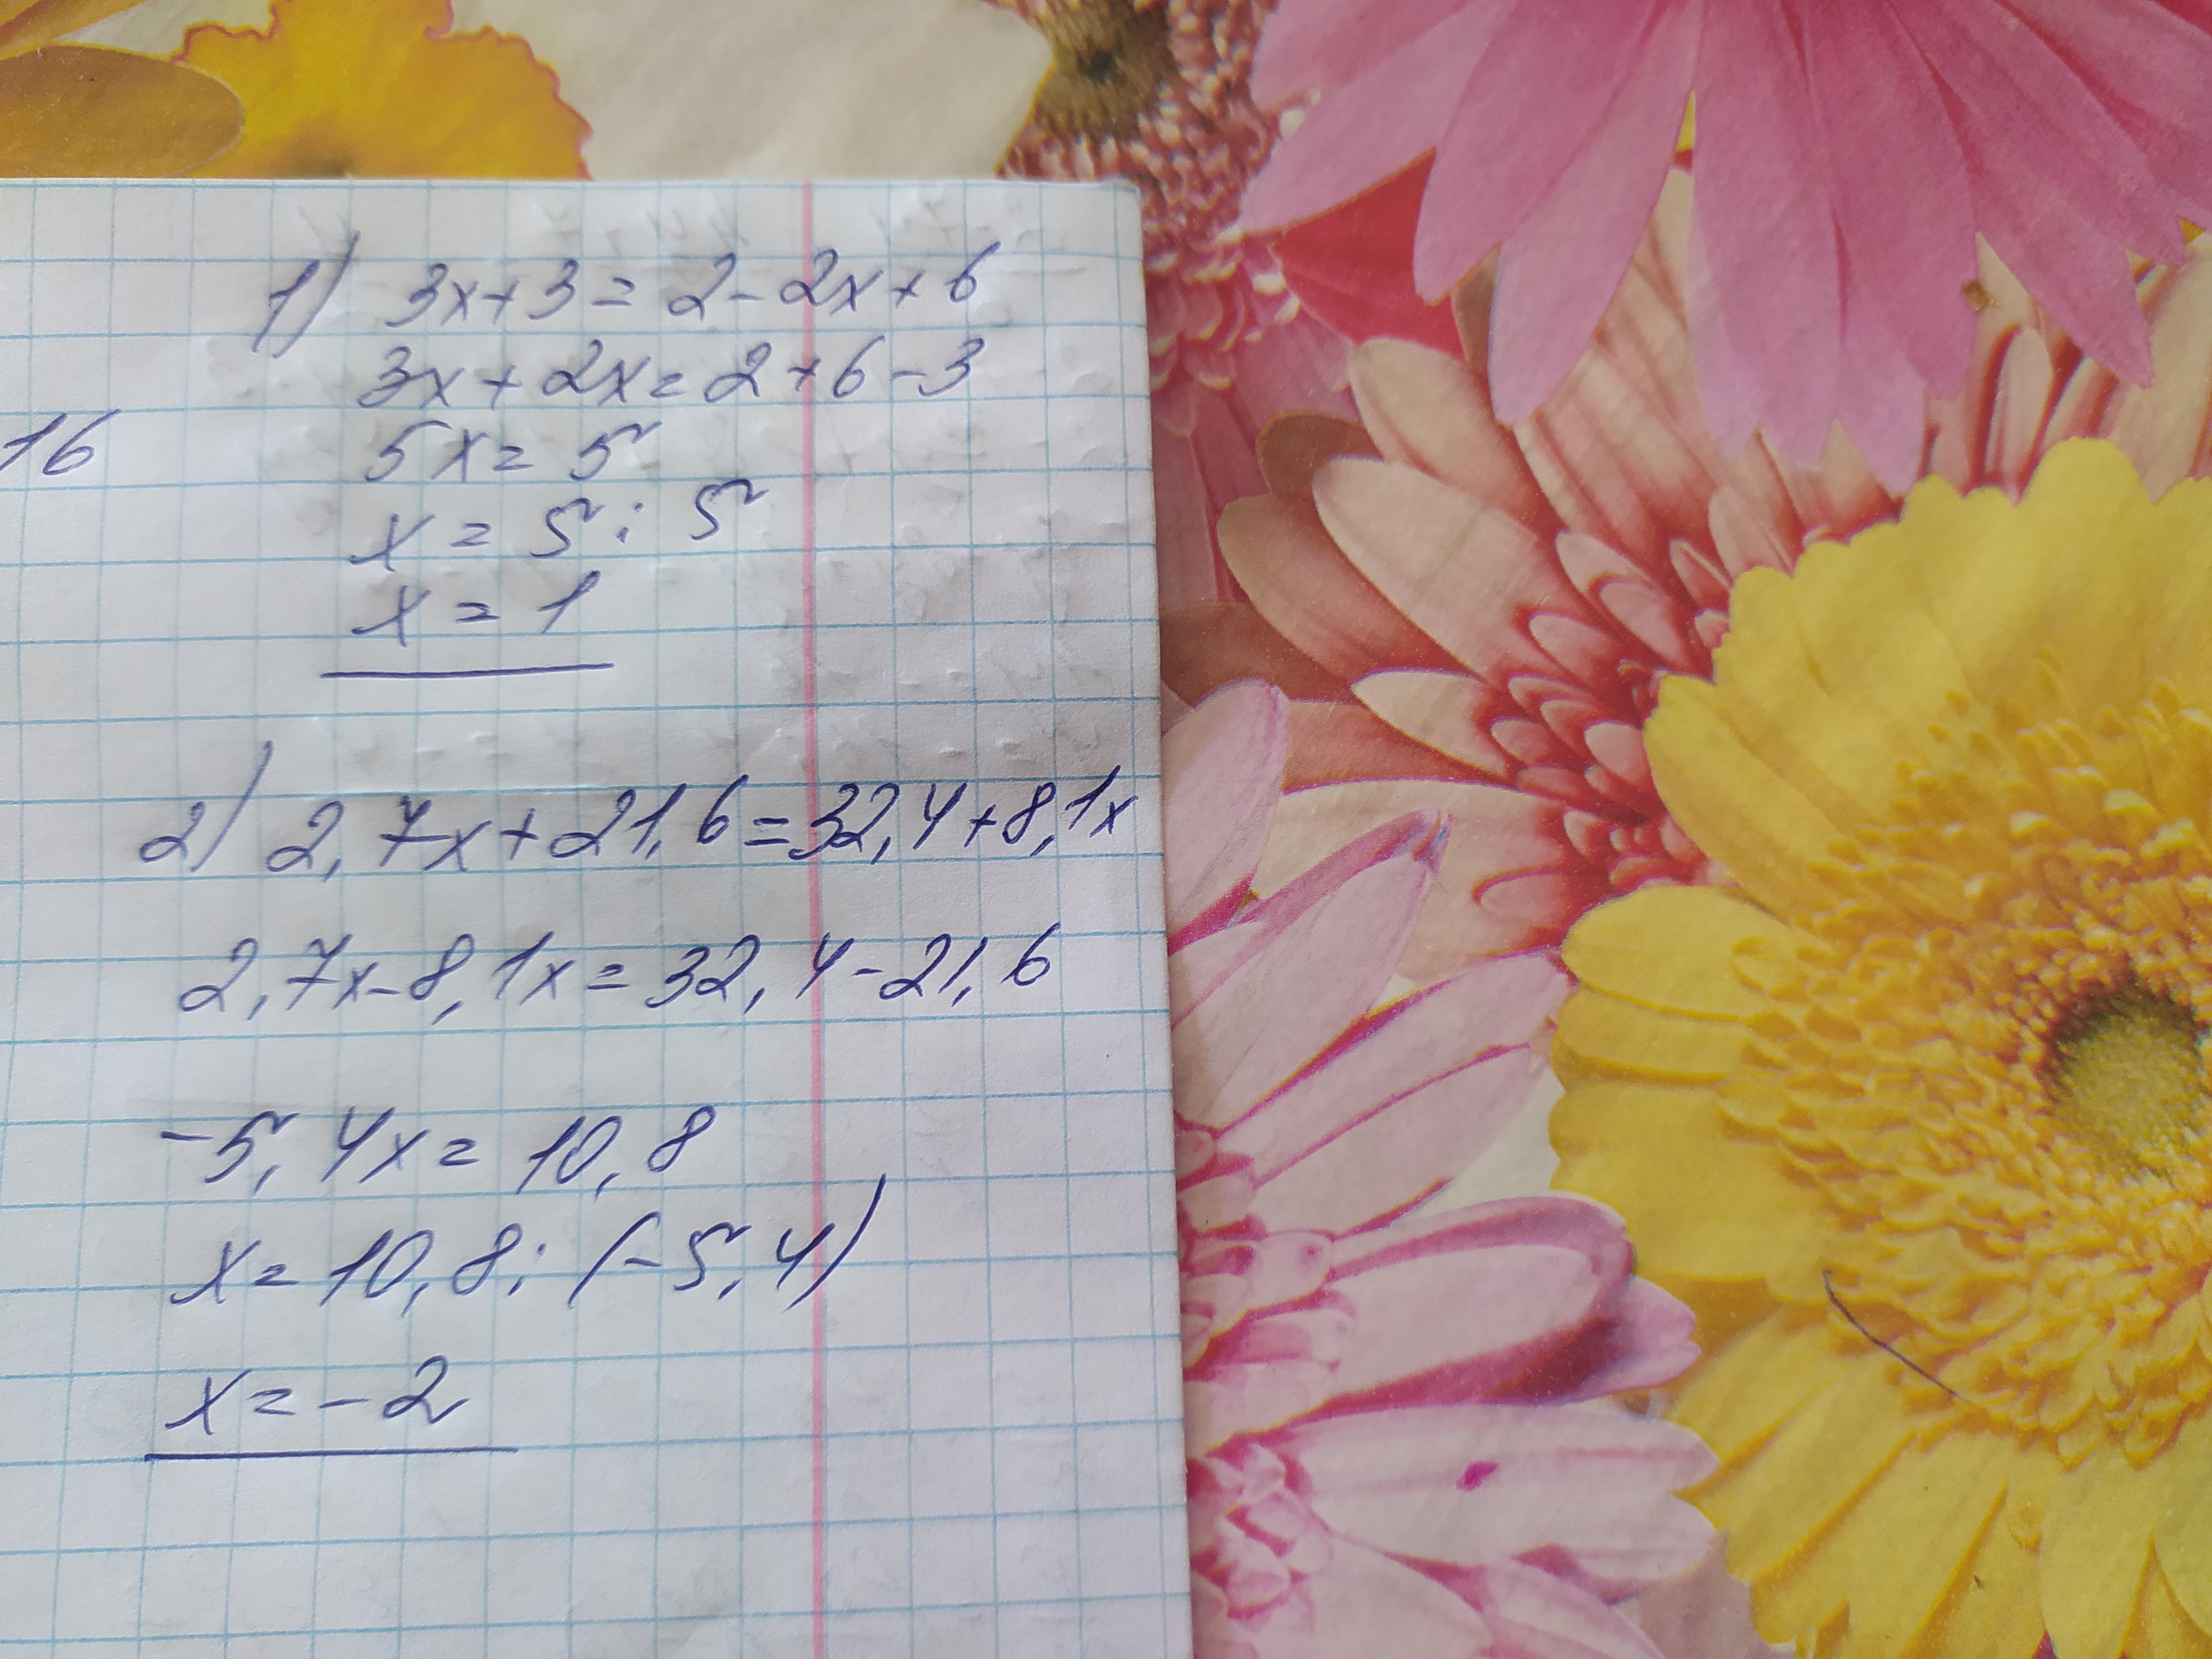 1) 3x+3=2-2x+6
3x+2x=2+6-3
16
5x=5
x=5:5
x=1
2) 2,7x+21,6=32,4+8,1x
2,7x-8,1x=32,4-21,6
-5,4x=10,8
x=10,8:(-5,4)
x=-2